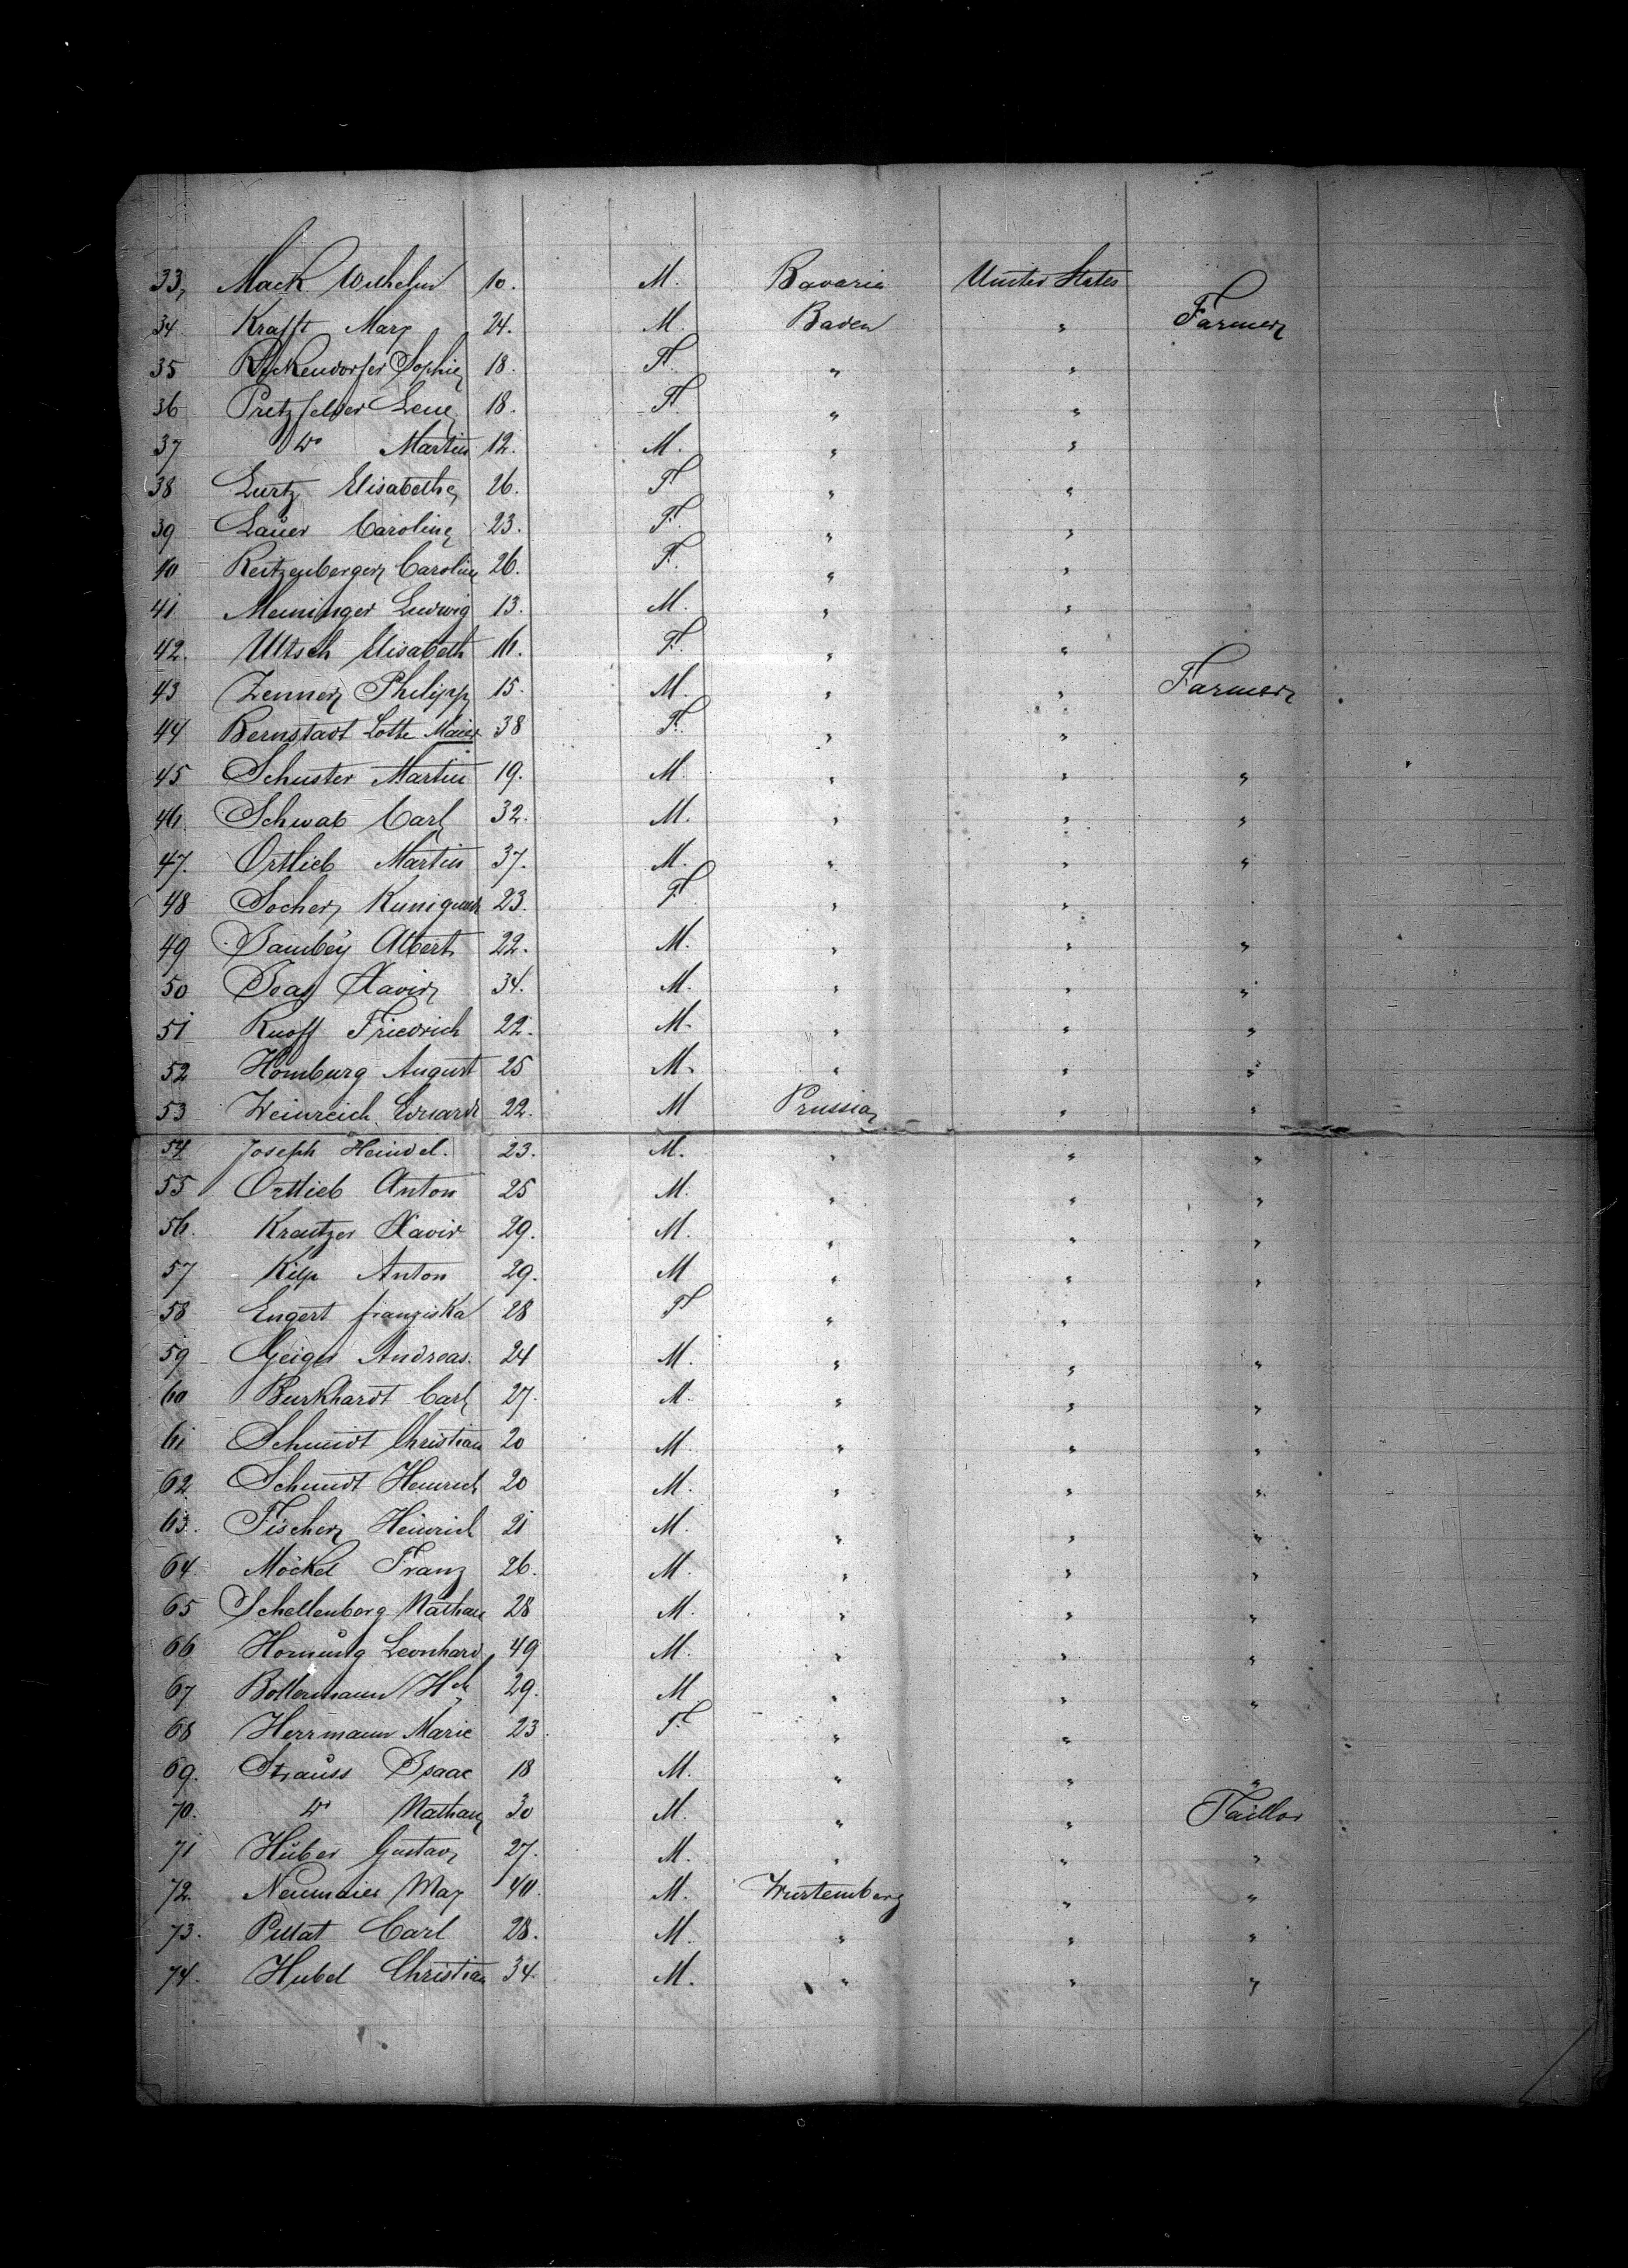 33, Mack Wilhelm 10. M. Bavaria United States
34 Krafft Marx 24. M. Baden " Farmer
35 Sophie 18. F. " "
36 Pretzfelder Lene 18. F " "
37 do Martin 12. M. " "
38 Lurtz Elisabethe 26. F " "
39 Lauer Caroline 23. F. " "
40 Reitzenberger Caroline 26. F. " "
41 Meininger Ludwig 13. M. " "
42. Ultsch Elisabeth 16. F. " "
43 Zenner Philipp 15. M. " " Farmer
44 Bernstadt Lotte Maier 38 F. " "
45 Schuster Martin 19. M. " " "
46. Schwab Carl 32. M. " " "
47. Ortlieb Martin 37. M. " " "
48 Socher Kunigunde 23. F " "
49 Albert 22. M. " " "
50 Xavir 34. M. " " "
51 Ruoff Friedrich 22. M. " " "
52 Homburg August 25 M. " " "
53 Weinreich Eduard 22. M Prussia " "
54 Joseph Heindel. 23. M. " " "
55 Ortlieb Anton 25 M. " " "
56. Krautzer Xavir 29. M. " " "
57 Kilp Anton 29. M " " "
58 Engert franziska 28 F " "
59 Geiger Andreas. 24 M. " " "
60 Burkhardt Carl 27. M. " " "
61 Schmidt Christian 20 M. " " "
62. Schmidt Heinrich 20 M. " " "
63. Fischer Heinrich 21 M. " " "
64. Möckel Franz 26. M. " " "
65 Schellenberg Nathan 28 M. " " "
66 Hornung Leonhard 49 M. " " "
67 Boltermann Hch 29. M " " "
68 Herrmann Marie 23. F. " "
69. Strauss Isaac 18 M. " " "
70. do Nathan 30 M. " " Taillor
71 Huber Gustav 27. M. " " "
72. Neumaier Max 40. M. Wurtemberg " "
73. Pillat Carl 28. M. " " "
74. Hubel Christian 34. M. " " "